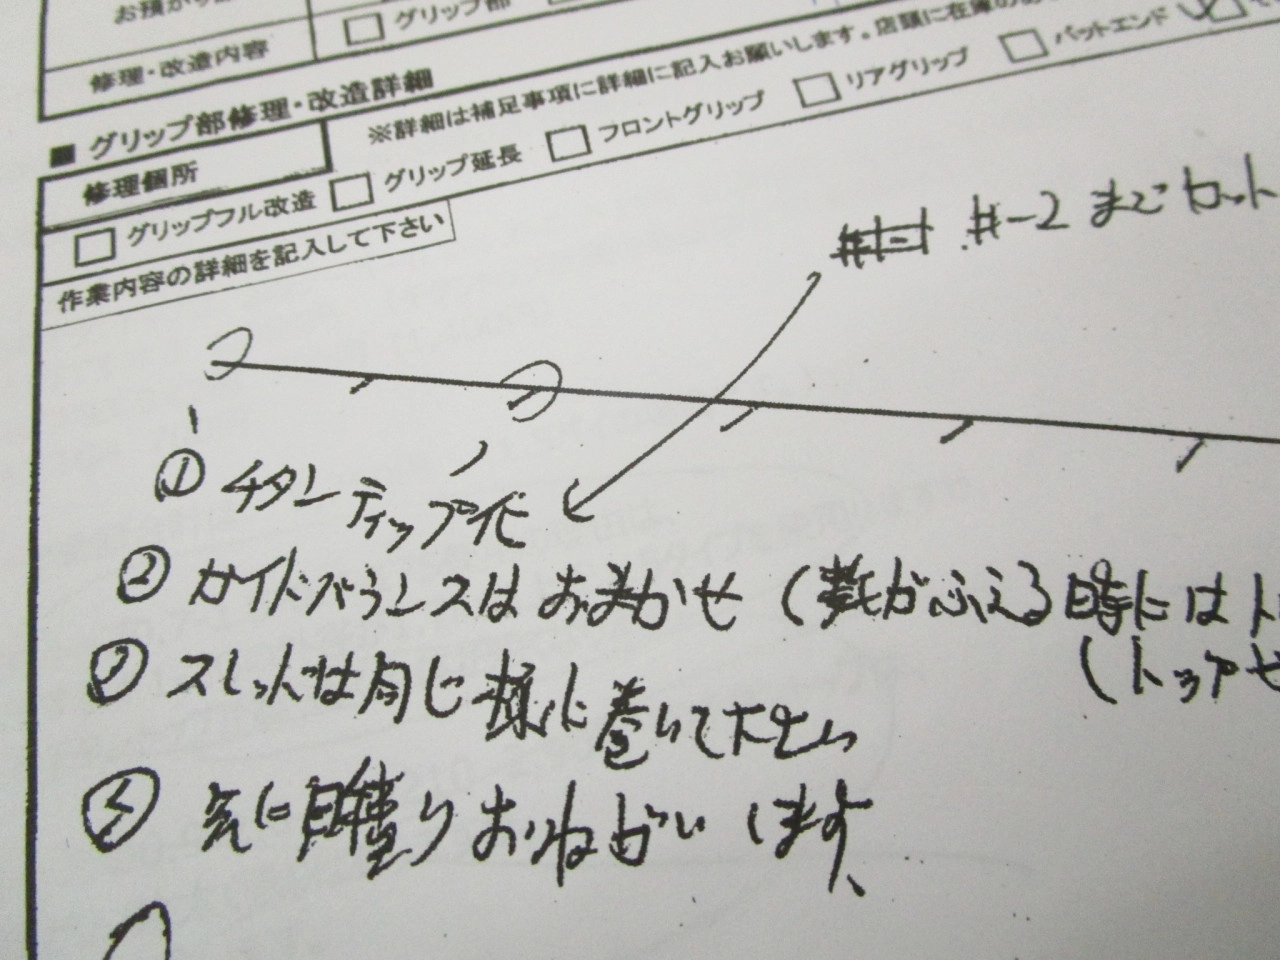 お預か
グリップ部
修理・改造内容
■ グリップ部修理・改造詳細
※詳細は補足事項に詳細に記入お願いします。店頭に在庫の
修理個所
グリップフル改造 グリップ延長 フロントグリップ リアグリップ バットエンド
作業内容の詳細を記入して下さい
#-2 までカット
① チタンティップ化
② ガイドバランスはおまかせ (数がふえる時には
(トップセ
スレッドは同じ様に巻いて下さい
先に目塗りおねがいします、